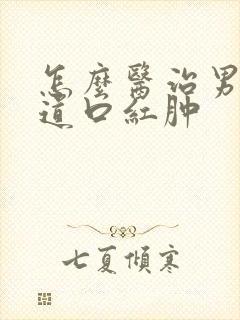 怎麼醫治男
道口紅肿
七夏傾寒